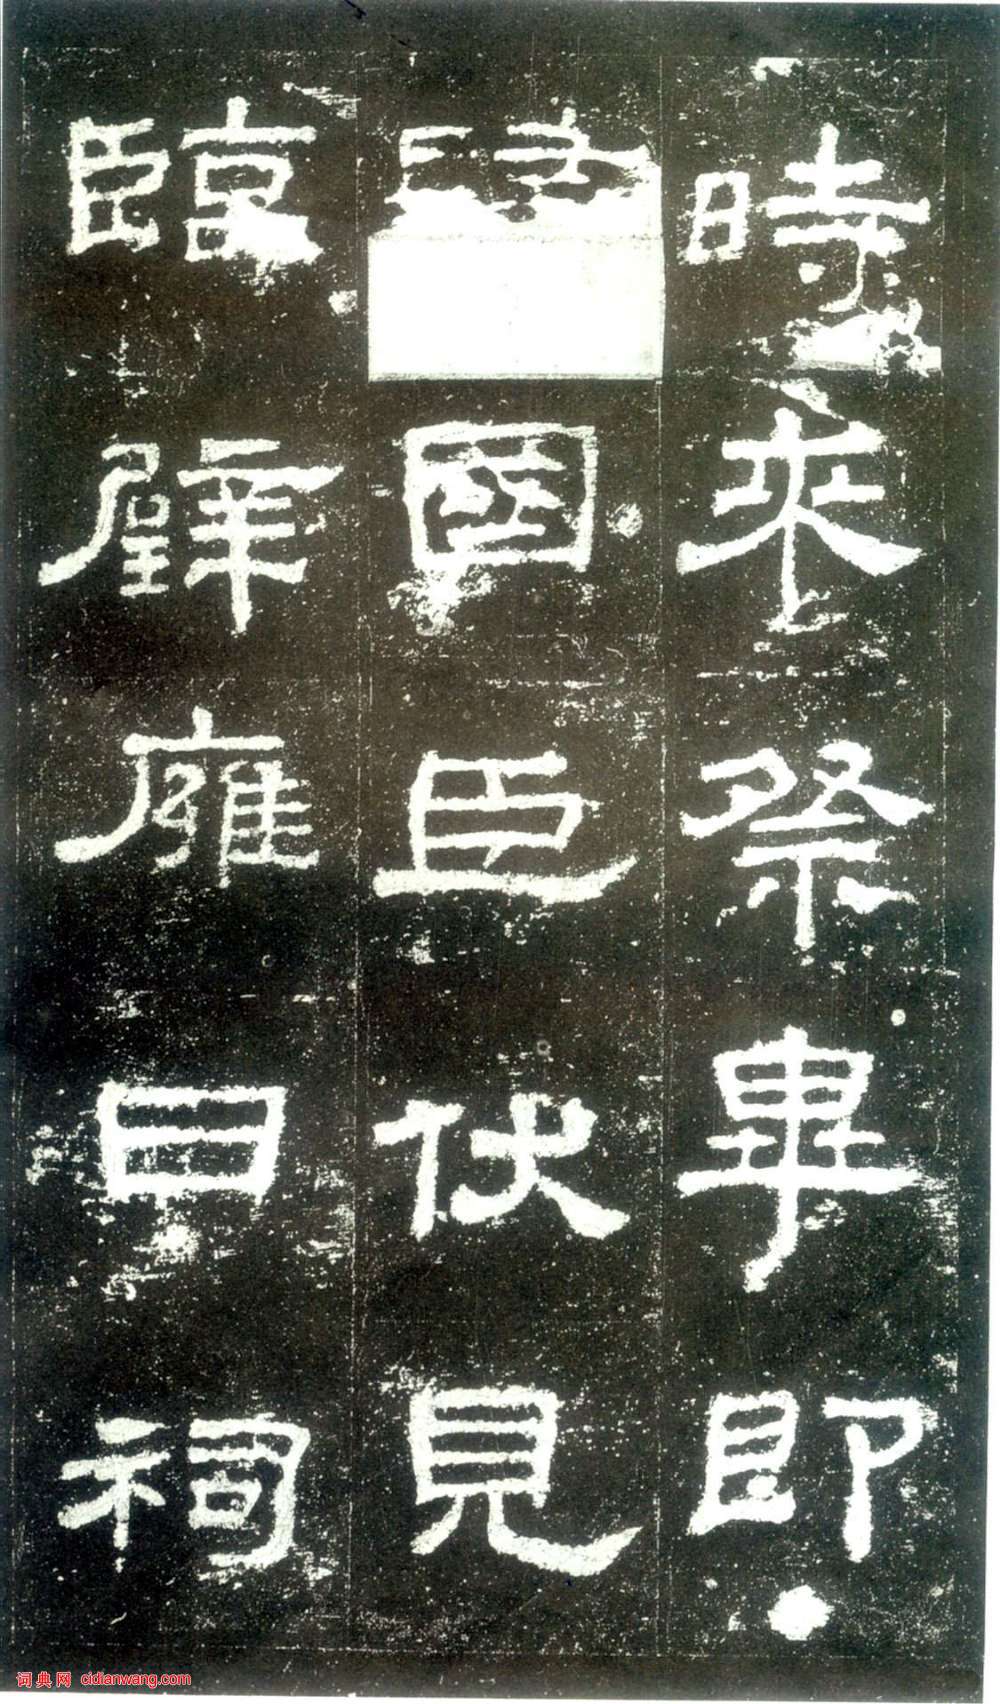 時來祭畢即
國臣伏見
臨璧雍日祠
词典网 cidianwang.com